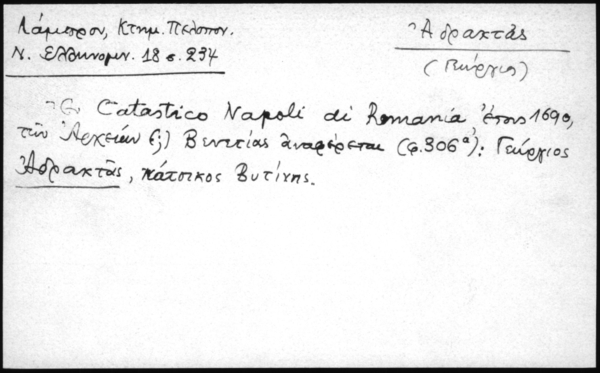 Λάμπρον, Κτημ. Πελοπον.
Ν. Ελληνομν. 18 σ. 234
Ἀδρακτᾶς
(Γεώργιος)
Ἐν Catastico Napoli di Romania ἔτους 1690,
τῶν Ἀρχείων Βενετίας ἀναφέρεται (φ. 306ᵃ): Γεώργιος
Ἀδρακτᾶς, κάτοικος Βυτίνης.